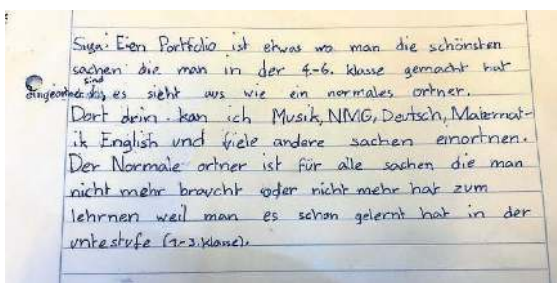 Siya: Eien Portfolio ist etwas wo man die schönsten
sachen die man in der 4.-6. klasse gemacht hat
sind
eingeortnet das, es sieht aus wie ein normales ortner.
Dort drin kan ich Musik, NMG, Deutsch, Matemat-
ik English und fiele andere sachen einortnen.
Der Normale ortner ist für alle sachen die man
nicht mehr braucht oder nicht mehr hat zum
lehrnen weil man es schon gelernt hat in der
untestufe (1-3. klasse).